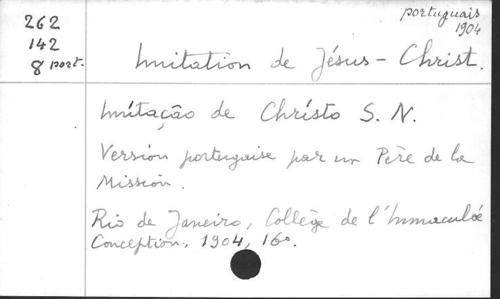 262
142
8 port.
portugais
1904
Imitation de Jésus-Christ.
Imítação de Chrísto S. N.
Version portugaise par un Père de la
Mission.
Rio de Janeiro, Collège de l'Immaculée
Conception, 1904, 16º.